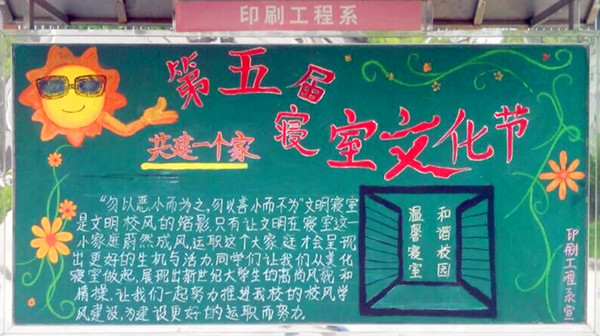 印刷工程系
第五届
寝室文化节
共建一个家
“勿以恶小而为之,勿以善小而不为”文明寝室
是文明校风的缩影,只有让文明在寝室这一
小家庭蔚然成风,运职这个大家庭才会呈现
出更好的生机与活力,同学们让我们从美化
寝室做起,展现出新世纪大学生的高尚风貌和
情操,让我们一起努力推进我校的校风学
风建设,为建设更好的运职而努力.
和谐校园
温馨寝室
印刷工程系宣